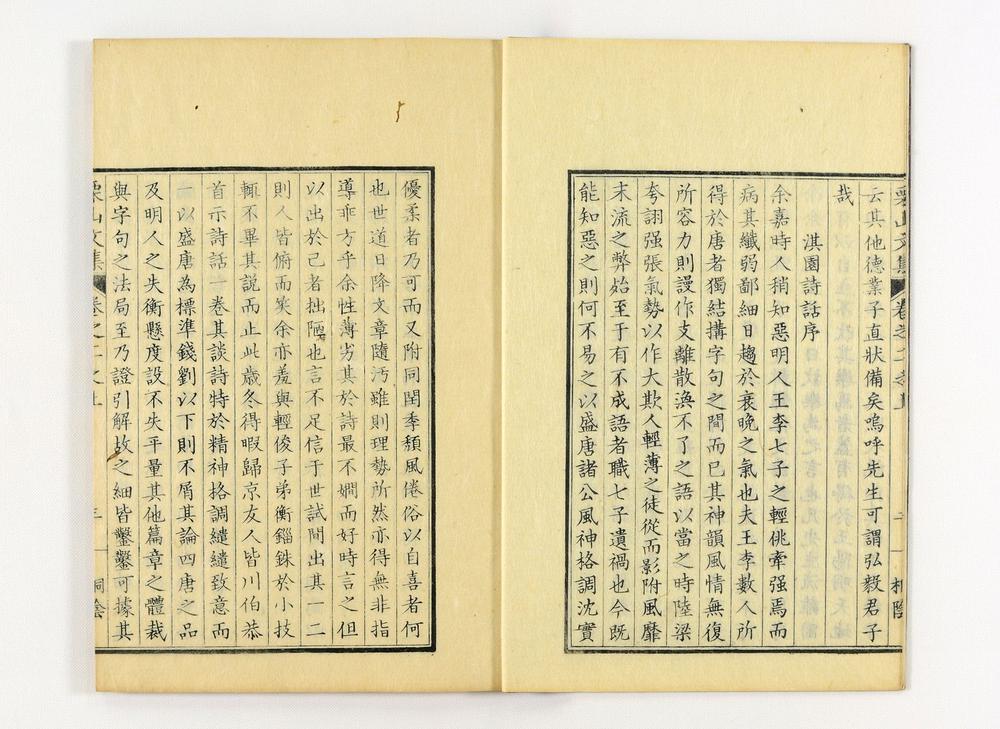 云其他德業子直狀備矣嗚呼先生可謂弘毅君子
哉
淇園詩話序
余嘉時人稍知惡明人王李七子之輕佻牽强焉而
病其纖弱鄙細日趨於衰晚之氣也夫王李數人所
得於唐者獨結搆字句之間而已其神韻風情無復
所容力則謾作支離散渙不了之語以當之時陸梁
夸詡强張氣勢以作大欺人輕薄之徒從而影附風靡
末流之弊始至于有不成語者職七子遺禍也今既
能知惡之則何不易之以盛唐諸公風神格調沈實
優柔者乃可而又附同閏季頹風倦俗以自喜者何
也世道日降文章隨汚雖則理勢所然亦得無非指
導乖方乎余性薄劣其於詩最不嫺而好時言之但
以出於己者拙陋也言不足信于世試間出其一二
則人皆俯而笑余亦羞與輕俊子弟衡錙銖於小技
輒不畢其說而止此歲冬得暇歸京友人皆川伯恭
首示詩話一卷其談詩特於精神格調繾繾致意而
一以盛唐為標準錢劉以下則不屑其論四唐之品
及明人之失衡懸度設不失平量其他篇章之體裁
與字句之法局至乃證引解故之細皆鑿鑿可據其
栗山文集 卷之二之上 三 桐陰